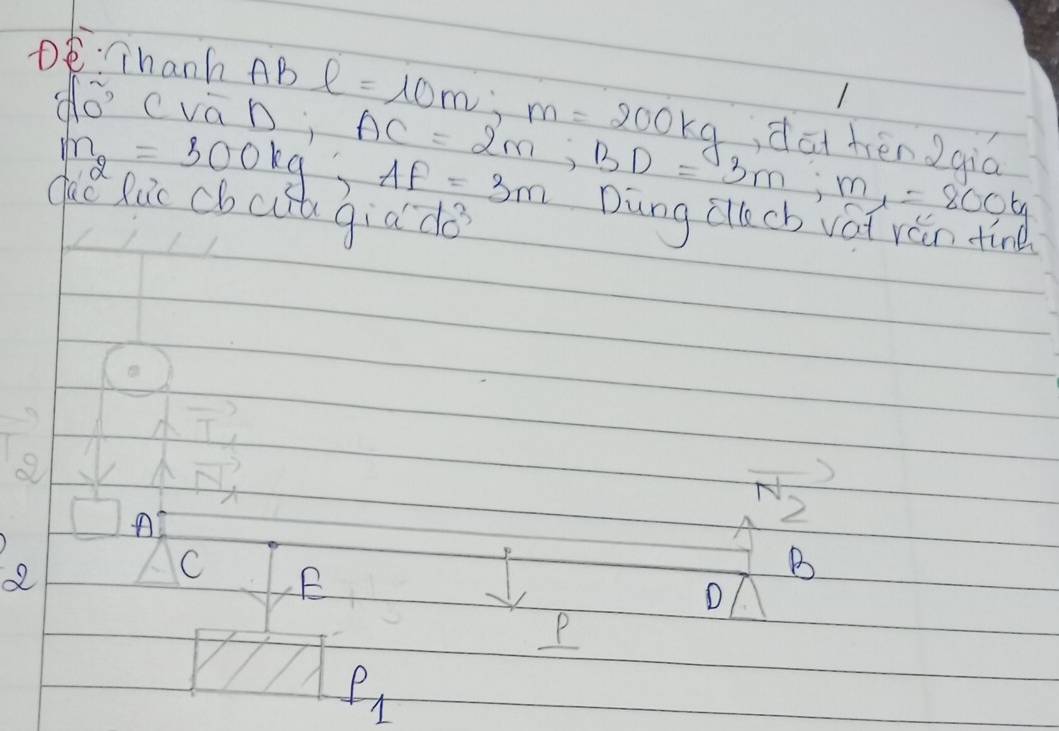 Đề: Thanh AB l = 10m; m = 200kg, đặt trên 2 giá
đỡ C và D; AC = 2m; BD = 3m; m1 = 800kg
m2 = 300kg; AE = 3m Dùng đkcb vật rắn tính
các lực cb của giá đỡ
T1
T2
N1
N2
A
C
E
B
D
P
2
P1